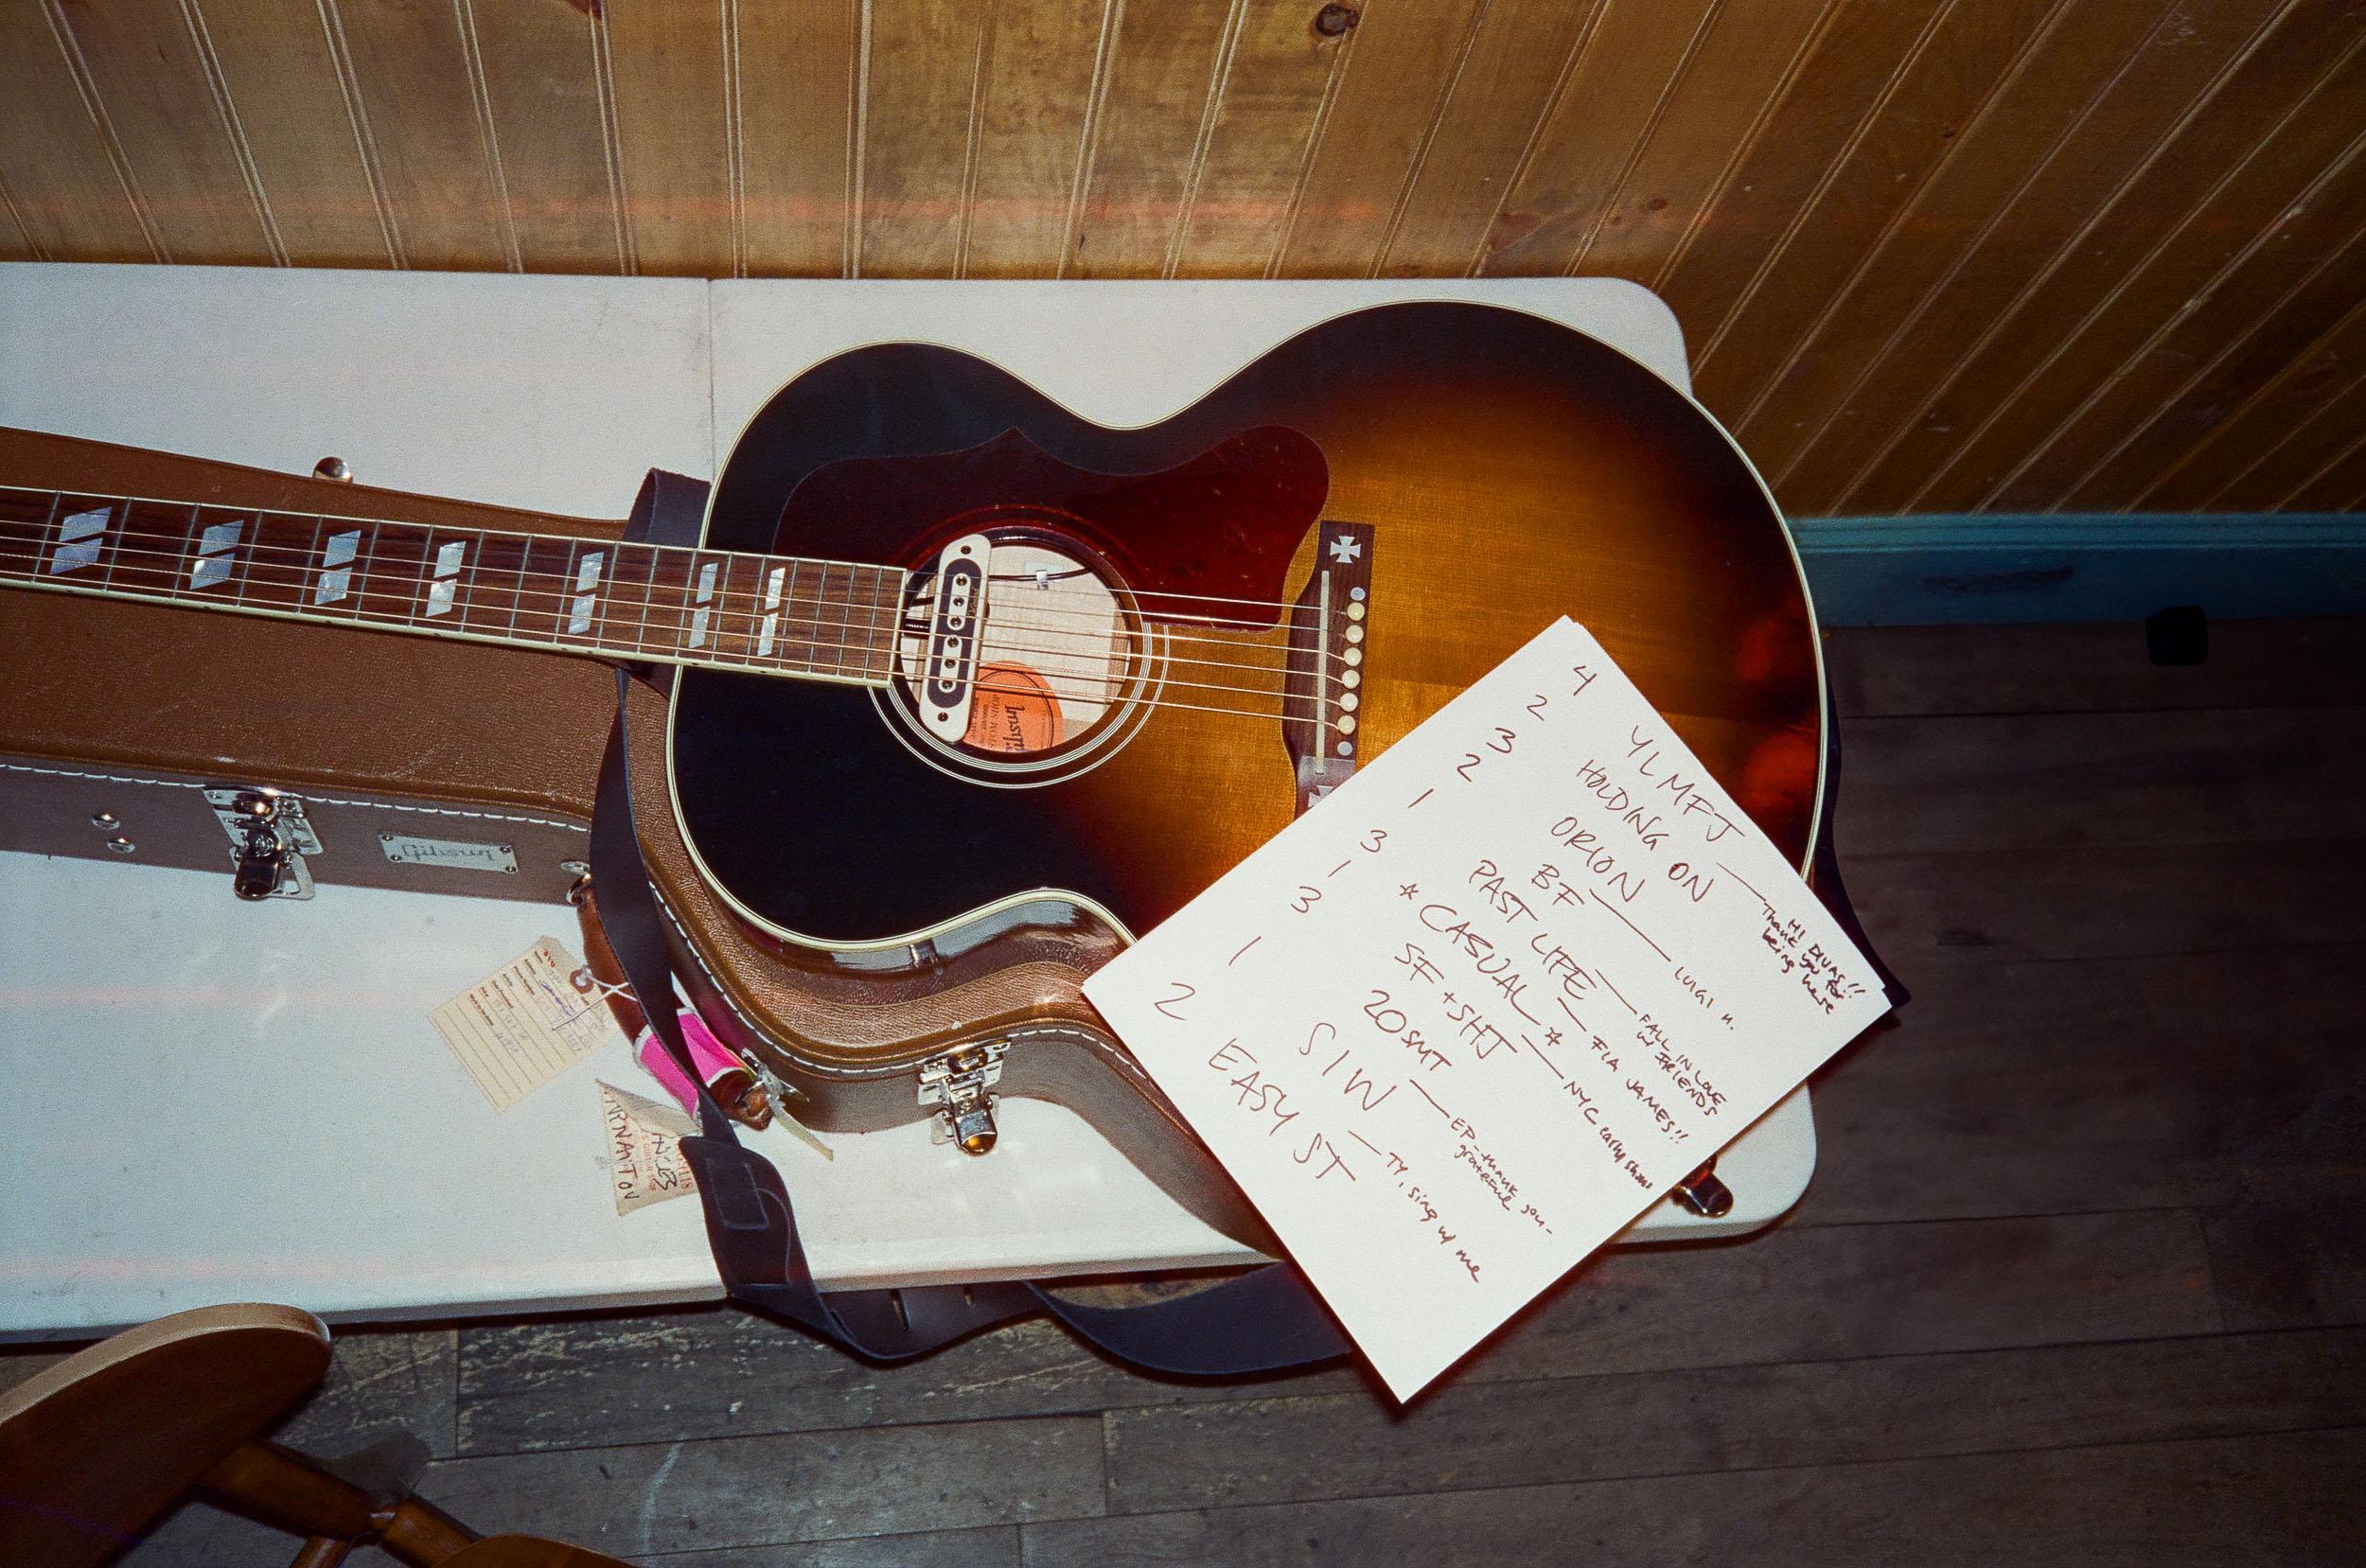 4 YLMFJ
2 HOLDING ON — HI DIVAS!!
Thank you for
being here
3 ORION
2 BF — LUIGI M.
1 PAST LIFE — FALL IN LOVE
W/ FRIENDS
3 * CASUAL * — FIA JAMES!!
1 SF + SHJ — NYC early show
3 20SMT — EP - thank you -
grateful
1 SIW — TY, sing w/ me
2 EASY ST
Gibson
CARNATION